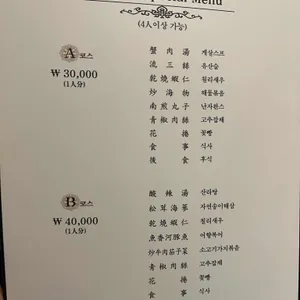 Menu
(4人이상 가능)
A 코스
₩ 30,000
(1人分)
蟹肉湯 게살스프
流三絲 유산슬
乾燒蝦仁 칠리새우
炒海物 해물볶음
南煎丸子 난자완스
青椒肉絲 고추잡채
花捲 꽃빵
食事 식사
後食 후식
B 코스
₩ 40,000
(1人分)
酸辣湯 산라탕
松茸海蔘 자연송이해삼
乾燒蝦仁 칠리새우
魚香河豚魚 어향복어
炒牛肉茄子菜 소고기가지볶음
青椒肉絲 고추잡채
花捲 꽃빵
食事 식사